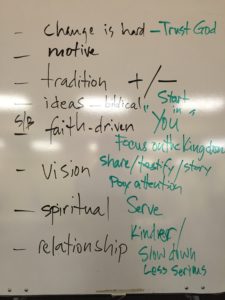 - Change is hard - Trust God
- motive
- tradition +/-
- ideas - biblical
Start in "you"
faith-driven
- Vision
focus on the Kingdom
share/testify/story
Pay attention
- spiritual
Serve
- relationship
Kinder/
Slow down
Less Serious